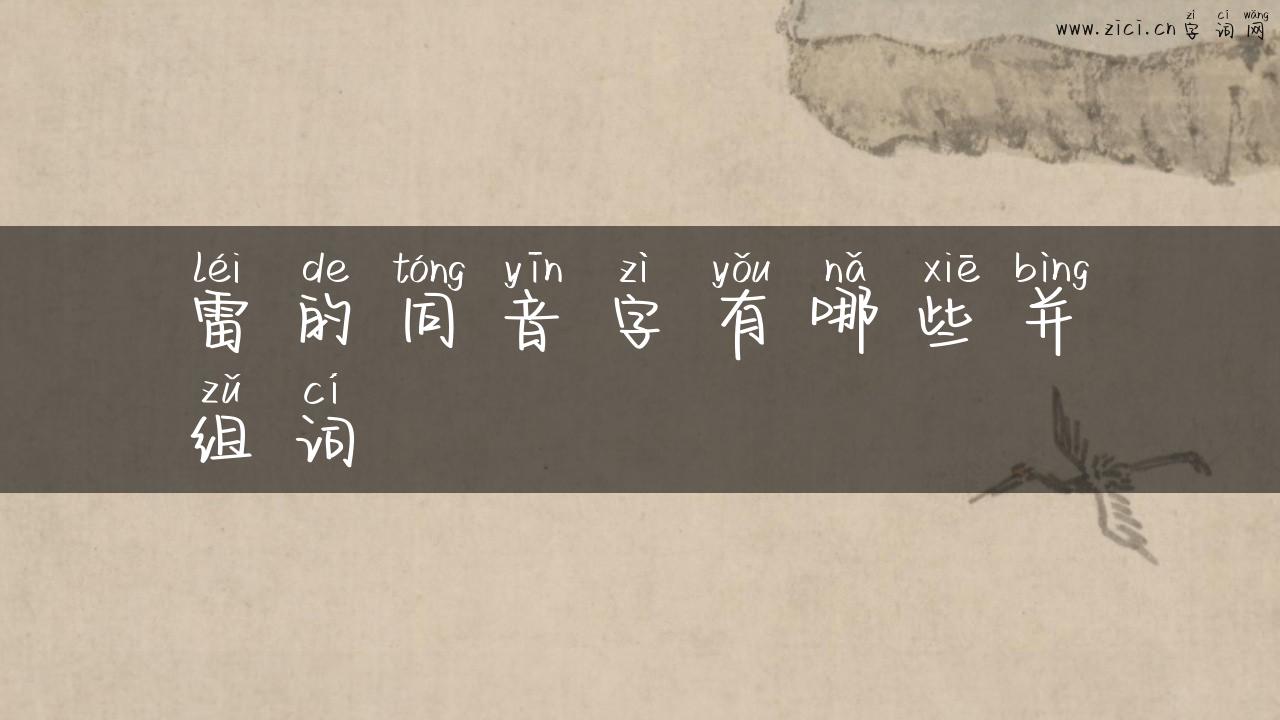 zì cí wǎng
www.zici.cn 字词网
léi de tóng yīn zì yǒu nǎ xiē bìng
雷的同音字有哪些并
zǔ cí
组词